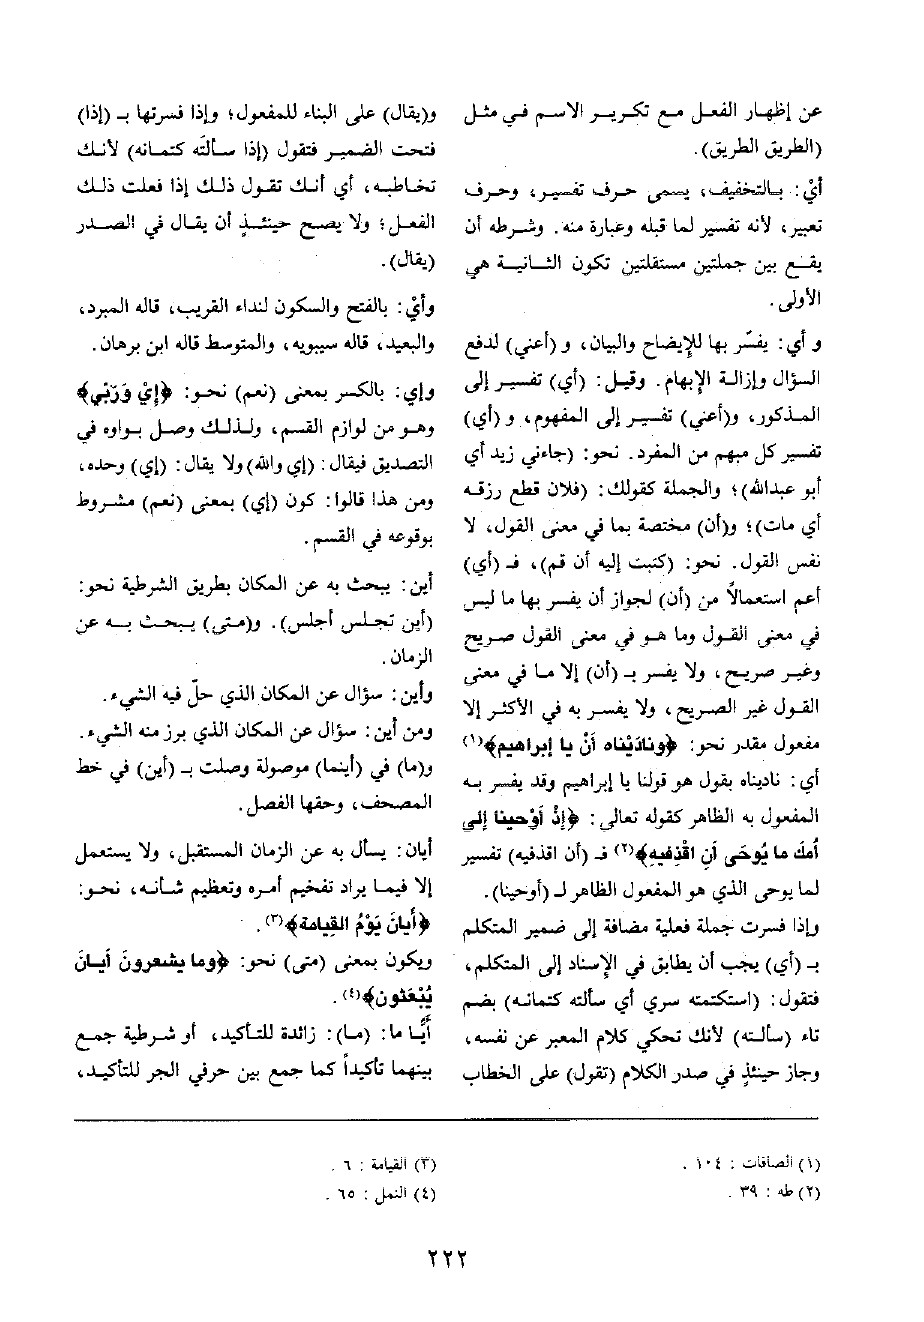 عن إظهار الفعل مع تكرير الاسم في مثل
(الطريق الطريق).
أيْ: بالتخفيف، يسمى حرف تفسير، وحرف
تعبير، لأنه تفسير لما قبله وعبارة منه. وشرطه أن
يقع بين جملتين مستقلتين تكون الثانية هي
الأولى.
و أي: يفسّر بها للإيضاح والبيان، و (أعني) لدفع
السؤال وإزالة الإبهام. وقيل: (أي) تفسير إلى
المذكور، و(أعني) تفسير إلى المفهوم، و (أي)
تفسير كل مبهم من المفرد. نحو: (جاءني زيد أي
أبو عبدالله)؛ والجملة كقولك: (فلان قطع رزقه
أي مات)؛ و(أن) مختصة بما في معنى القول، لا
نفس القول. نحو: (كتبت إليه أن قم)، فـ (أي)
أعم استعمالاً من (أن) لجواز أن يفسر بها ما ليس
في معنى القول وما هو في معنى القول صريح
وغير صريح، ولا يفسر بـ (أن) إلا ما في معنى
القول غير الصريح، ولا يفسر به في الأكثر إلا
مفعول مقدر نحو: ﴿وناديْناه أنْ يا إبراهيم﴾(١)
أي: ناديناه بقول هو قولنا يا إبراهيم وقد يفسر به
المفعول به الظاهر كقوله تعالى: ﴿إذْ أوْحينا إلى
أمك ما يُوحَى أنِ اقْذِفيهِ﴾(٢) فـ (أن اقذفيه) تفسير
لما يوحى الذي هو المفعول الظاهر لـ (أوحينا).
وإذا فسرت جملة فعلية مضافة إلى ضمير المتكلم
بـ (أي) يجب أن يطابق في الإسناد إلى المتكلم،
فتقول: (استكتمته سري أي سألته كتمانه) بضم
تاء (سألته) لأنك تحكي كلام المعبر عن نفسه،
وجاز حينئذٍ في صدر الكلام (تقول) على الخطاب
و(يقال) على البناء للمفعول؛ وإذا فسرتها بـ (إذا)
فتحت الضمير فتقول (إذا سألتَه كتمانه) لأنك
تخاطبه، أي أنك تقول ذلك إذا فعلت ذلك
الفعل؛ ولا يصح حينئذٍ أن يقال في الصدر
(يقال).
وأيْ: بالفتح والسكون لنداء القريب، قاله المبرد،
والبعيد، قاله سيبويه، والمتوسط قاله ابن برهان.
وإي: بالكسر بمعنى (نعم) نحو: ﴿إيْ وَرَبّي﴾
وهو من لوازم القسم، ولذلك وصل بواوه في
التصديق فيقال: (إي والله) ولا يقال: (إي) وحده،
ومن هذا قالوا: كون (إي) بمعنى (نعم) مشروط
بوقوعه في القسم.
أين: يبحث به عن المكان بطريق الشرطية نحو:
(أين تجلس أجلس). و(متى) يبحث به عن
الزمان.
وأين: سؤال عن المكان الذي حلّ فيه الشيء.
ومن أين: سؤال عن المكان الذي برز منه الشيء.
و(ما) في (أينما) موصولة وصلت بـ (أين) في خط
المصحف، وحقها الفصل.
أيان: يسأل به عن الزمان المستقبل، ولا يستعمل
إلا فيما يراد تفخيم أمره وتعظيم شأنه، نحو:
﴿أيانَ يَوْمُ القِيامة﴾(٣).
ويكون بمعنى (متى) نحو: ﴿وما يشعرونَ أيانَ
يُبْعَثون﴾(٤).
أيًّا ما: (ما): زائدة للتأكيد، أو شرطية جمع
بينهما تأكيداً كما جمع بين حرفي الجر للتأكيد،
(١) الصافات : ١٠٤ .
(٢) طه : ٣٩ .
(٣) القيامة : ٦ .
(٤) النمل : ٦٥ .
٢٢٢